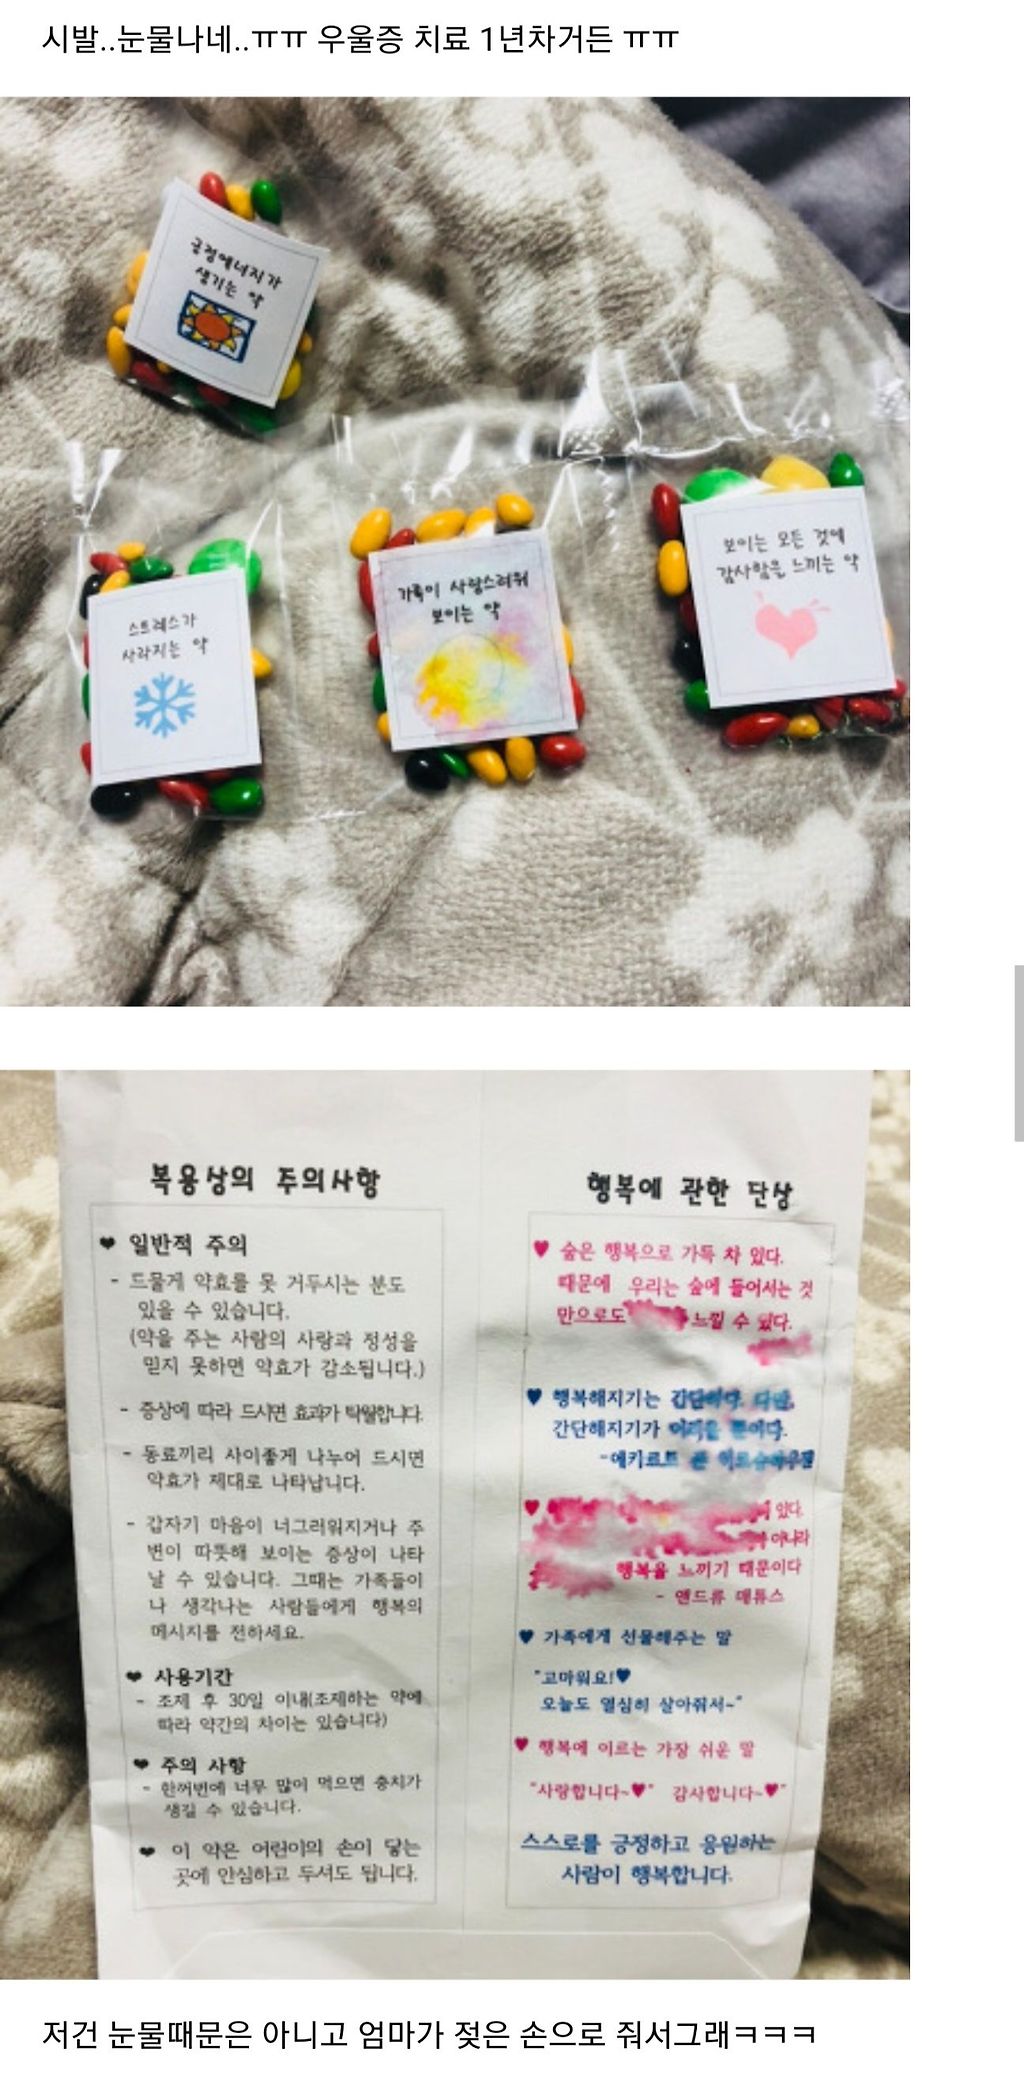 시발..눈물나네..ㅠㅠ 우울증 치료 1년차거든 ㅠㅠ
긍정에너지가
생기는 약
스트레스가
사라지는 약
가족이 사랑스러워
보이는 약
보이는 모든 것에
감사함을 느끼는 약
복용상의 주의사항
❤ 일반적 주의
- 드물게 약효를 못 거두시는 분도
있을 수 있습니다.
(약을 주는 사람의 사랑과 정성을
믿지 못하면 약효가 감소됩니다.)
- 증상에 따라 드시면 효과가 탁월합니다.
- 동료끼리 사이좋게 나누어 드시면
약효가 제대로 나타납니다.
- 갑자기 마음이 너그러워지거나 주
변이 따뜻해 보이는 증상이 나타
날 수 있습니다. 그때는 가족들이
나 생각나는 사람들에게 행복의
메시지를 전하세요.
❤ 사용기간
- 조제 후 30일 이내(조제하는 약에
따라 약간의 차이는 있습니다)
❤ 주의 사항
- 한꺼번에 너무 많이 먹으면 충치가
생길 수 있습니다.
❤ 이 약은 어린이의 손이 닿는
곳에 안심하고 두셔도 됩니다.
행복에 관한 단상
♥ 숲은 행복으로 가득 차 있다.
때문에 우리는 숲에 들어서는 것
만으로도 느낄 수 있다.
♥ 행복해지기는 간단하다. 다만,
간단해지기가 어려울 뿐이다.
-에카르트 폰
♥ 있다.
아니라
행복을 느끼기 때문이다
- 앤드류 매튜스
♥ 가족에게 선물해주는 말
"고마워요!♥
오늘도 열심히 살아줘서~"
♥ 행복에 이르는 가장 쉬운 말
"사랑합니다~♥" 감사합니다~♥"
스스로를 긍정하고 응원하는
사람이 행복합니다.
저건 눈물때문은 아니고 엄마가 젖은 손으로 줘서그래ㅋㅋㅋ